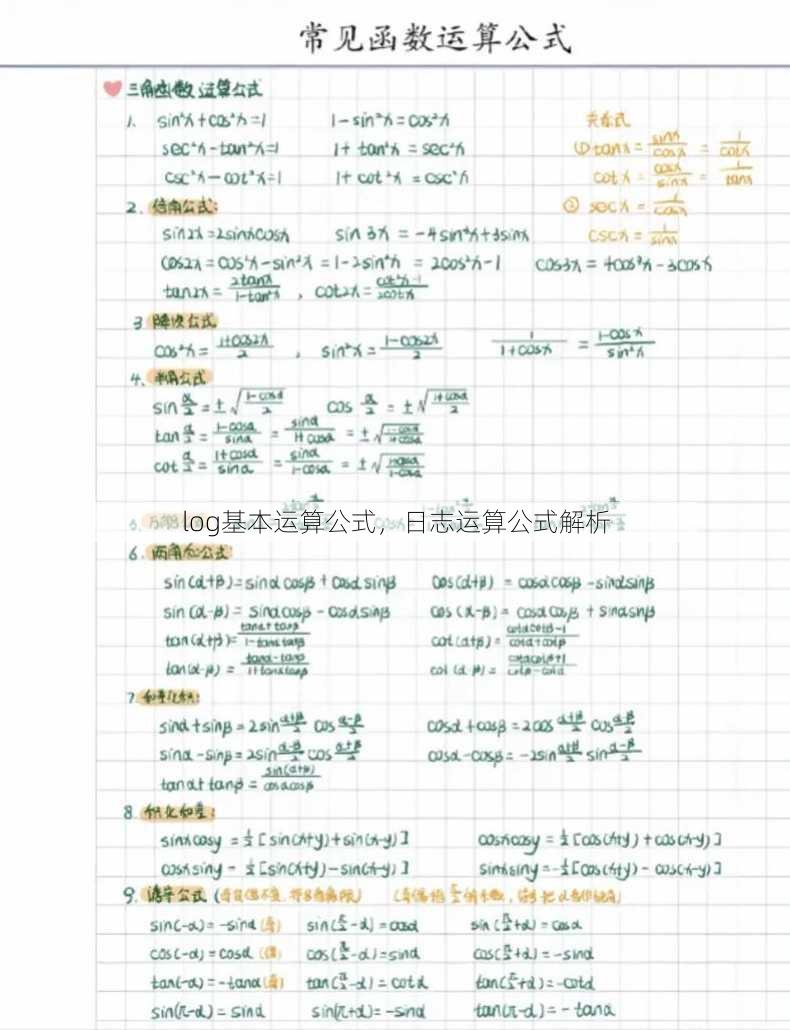 常见函数运算公式
三角函数运算公式
1. sin²x+cos²x=1 1-sin²x=cos²x 关系式
sec²x-tan²x=1 1+tan²x=sec²x ①tanx=sinx/cosx=1/cotx
csc²x-cot²x=1 1+cot²x=csc²x cotx=cosx/sinx=1/tanx
2. 倍角公式: ② secx=1/cosx
sin2x=2sinxcosx sin3x=-4sin³x+3sinx cscx=1/sinx
cos2x=cos²x-sin²x=1-2sin²x=2cos²x-1 cos3x=4cos³x-3cosx
tan2x=2tanx/1-tan²x , cot2x=cot²x-1/2cotx
3 降次公式
cos²x=1+cos2x/2 , sin²x=1-cos2x/2 1/1+cosx=1-cosx/sin²x
4. 半角公式
sin α/2=±√1-cosα/2 cos α/2=±√1+cosα/2
tan α/2=1-cosα/sinα=sinα/1+cosα=±√1-cosα/1+cosα
cot α/2=1+cosα/sinα=sinα/1-cosα=±√1+cosα/1-cosα
log基本运算公式，日志运算公式解析
6. 两角和公式:
sin(α+β)=sinαcosβ+cosαsinβ cos(α+β)=cosαcosβ-sinαsinβ
sin(α-β)=sinαcosβ-cosαsinβ cos(α-β)=cosαcosβ+sinαsinβ
tan(α+β)=tanα+tanβ/1-tanαtanβ cot(α+β)=cotαcotβ-1/cotα+cotβ
tan(α-β)=tanα-tanβ/1+tanαtanβ cot(α-β)=cotαcotβ+1/cotβ-cotα
7. 和差化积:
sinα+sinβ=2sin α+β/2 cos α-β/2 cosα+cosβ=2cos α+β/2 cos α-β/2
sinα-sinβ=2sin α-β/2 cos α+β/2 cosα-cosβ=-2sin α+β/2 sin α-β/2
tanα+tanβ=sin(α+β)/cosαcosβ
8. 积化和差:
sinxcosy=½[sin(x+y)+sin(x-y)] cosxcosy=½[cos(x+y)+cos(x-y)]
cosxsiny=½[sin(x+y)-sin(x-y)] sinxsiny=-½[cos(x+y)-cos(x-y)]
9. 诱导公式 (奇变偶不变,符号看象限)
sin(-α)=-sinα(奇) sin(π/2-α)=cosα sin(π/2+α)=cosα
cos(-α)=cosα(偶) cos(π/2-α)=sinα cos(π/2+α)=-sinα
tan(-α)=-tanα(奇) tan(π/2-α)=cotα tan(π/2+α)=-cotα
sin(π-α)=sinα sin(π+α)=-sinα tan(π-α)=-tanα